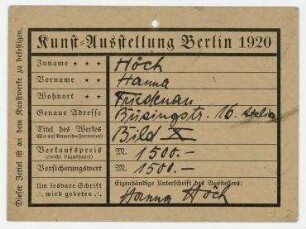 Dieser Zettel ist an dem Kunstwerke zu befestigen.
Kunst=Ausstellung Berlin 1920
Zuname Höch
Vorname Hanna
Wohnort Friedenau
Genaue Adresse Büsingstr. 16.
Titel des Werkes Bild X
Verkaufspreis M 1500.-
Versicherungswert M 1500.-
Um lesbare Schrift wird gebeten
Eigenhändige Unterschrift des Ausstellers:
Hanna Höch